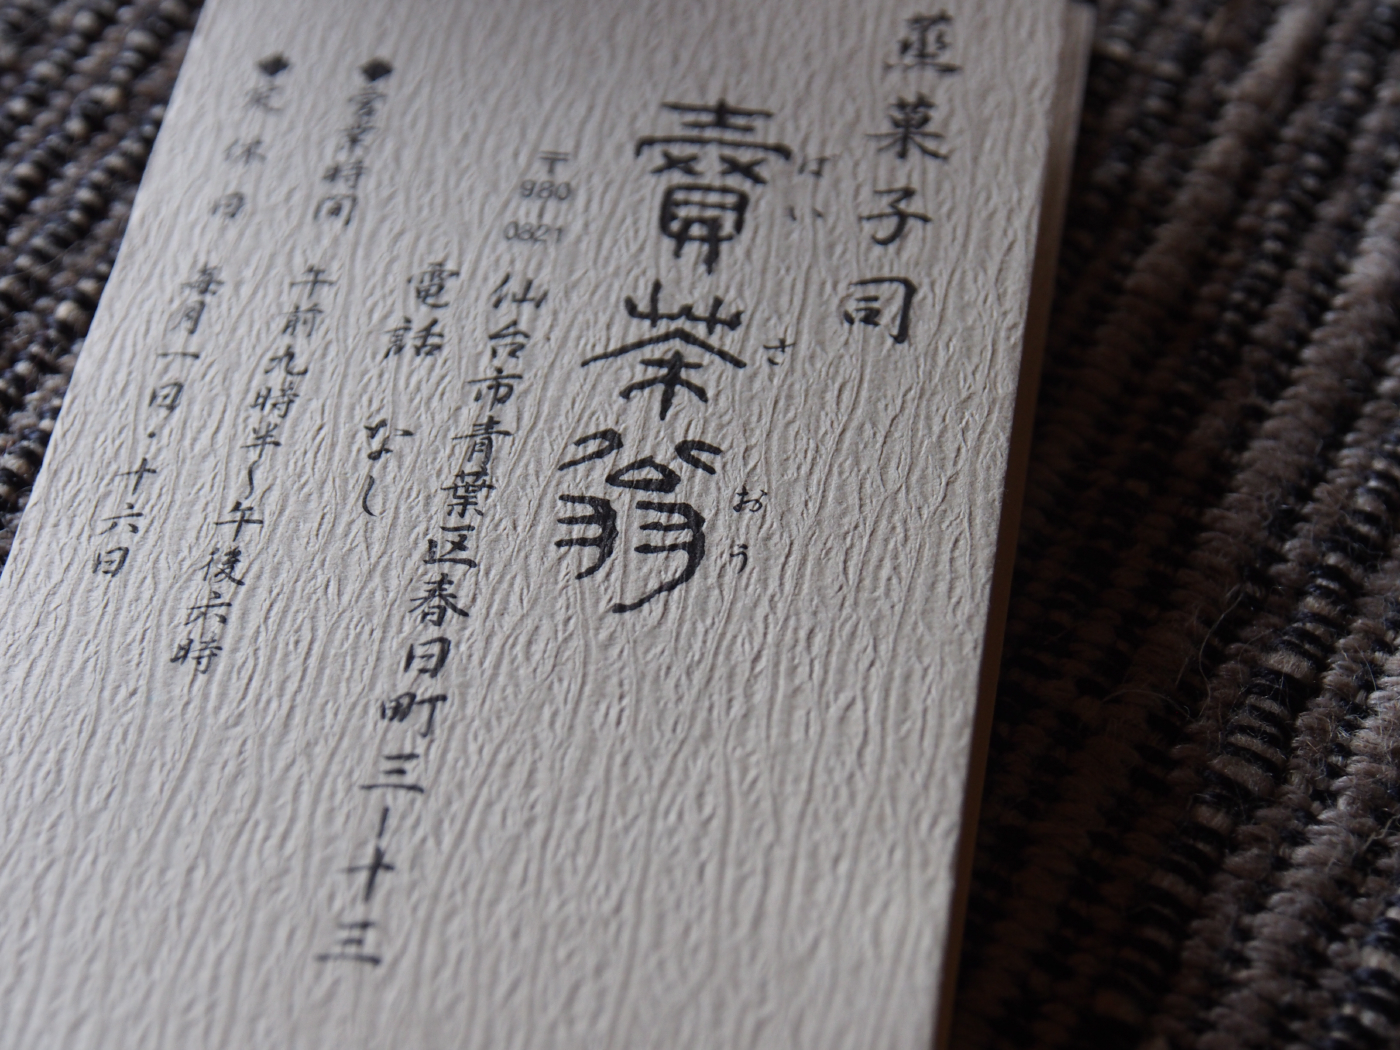 蒸菓子司
賣茶翁
ばいさおう
〒980-0821
仙台市青葉区春日町三ー十三
電話 なし
◆営業時間 午前九時半〜午後六時
◆定休日 毎月一日・十六日